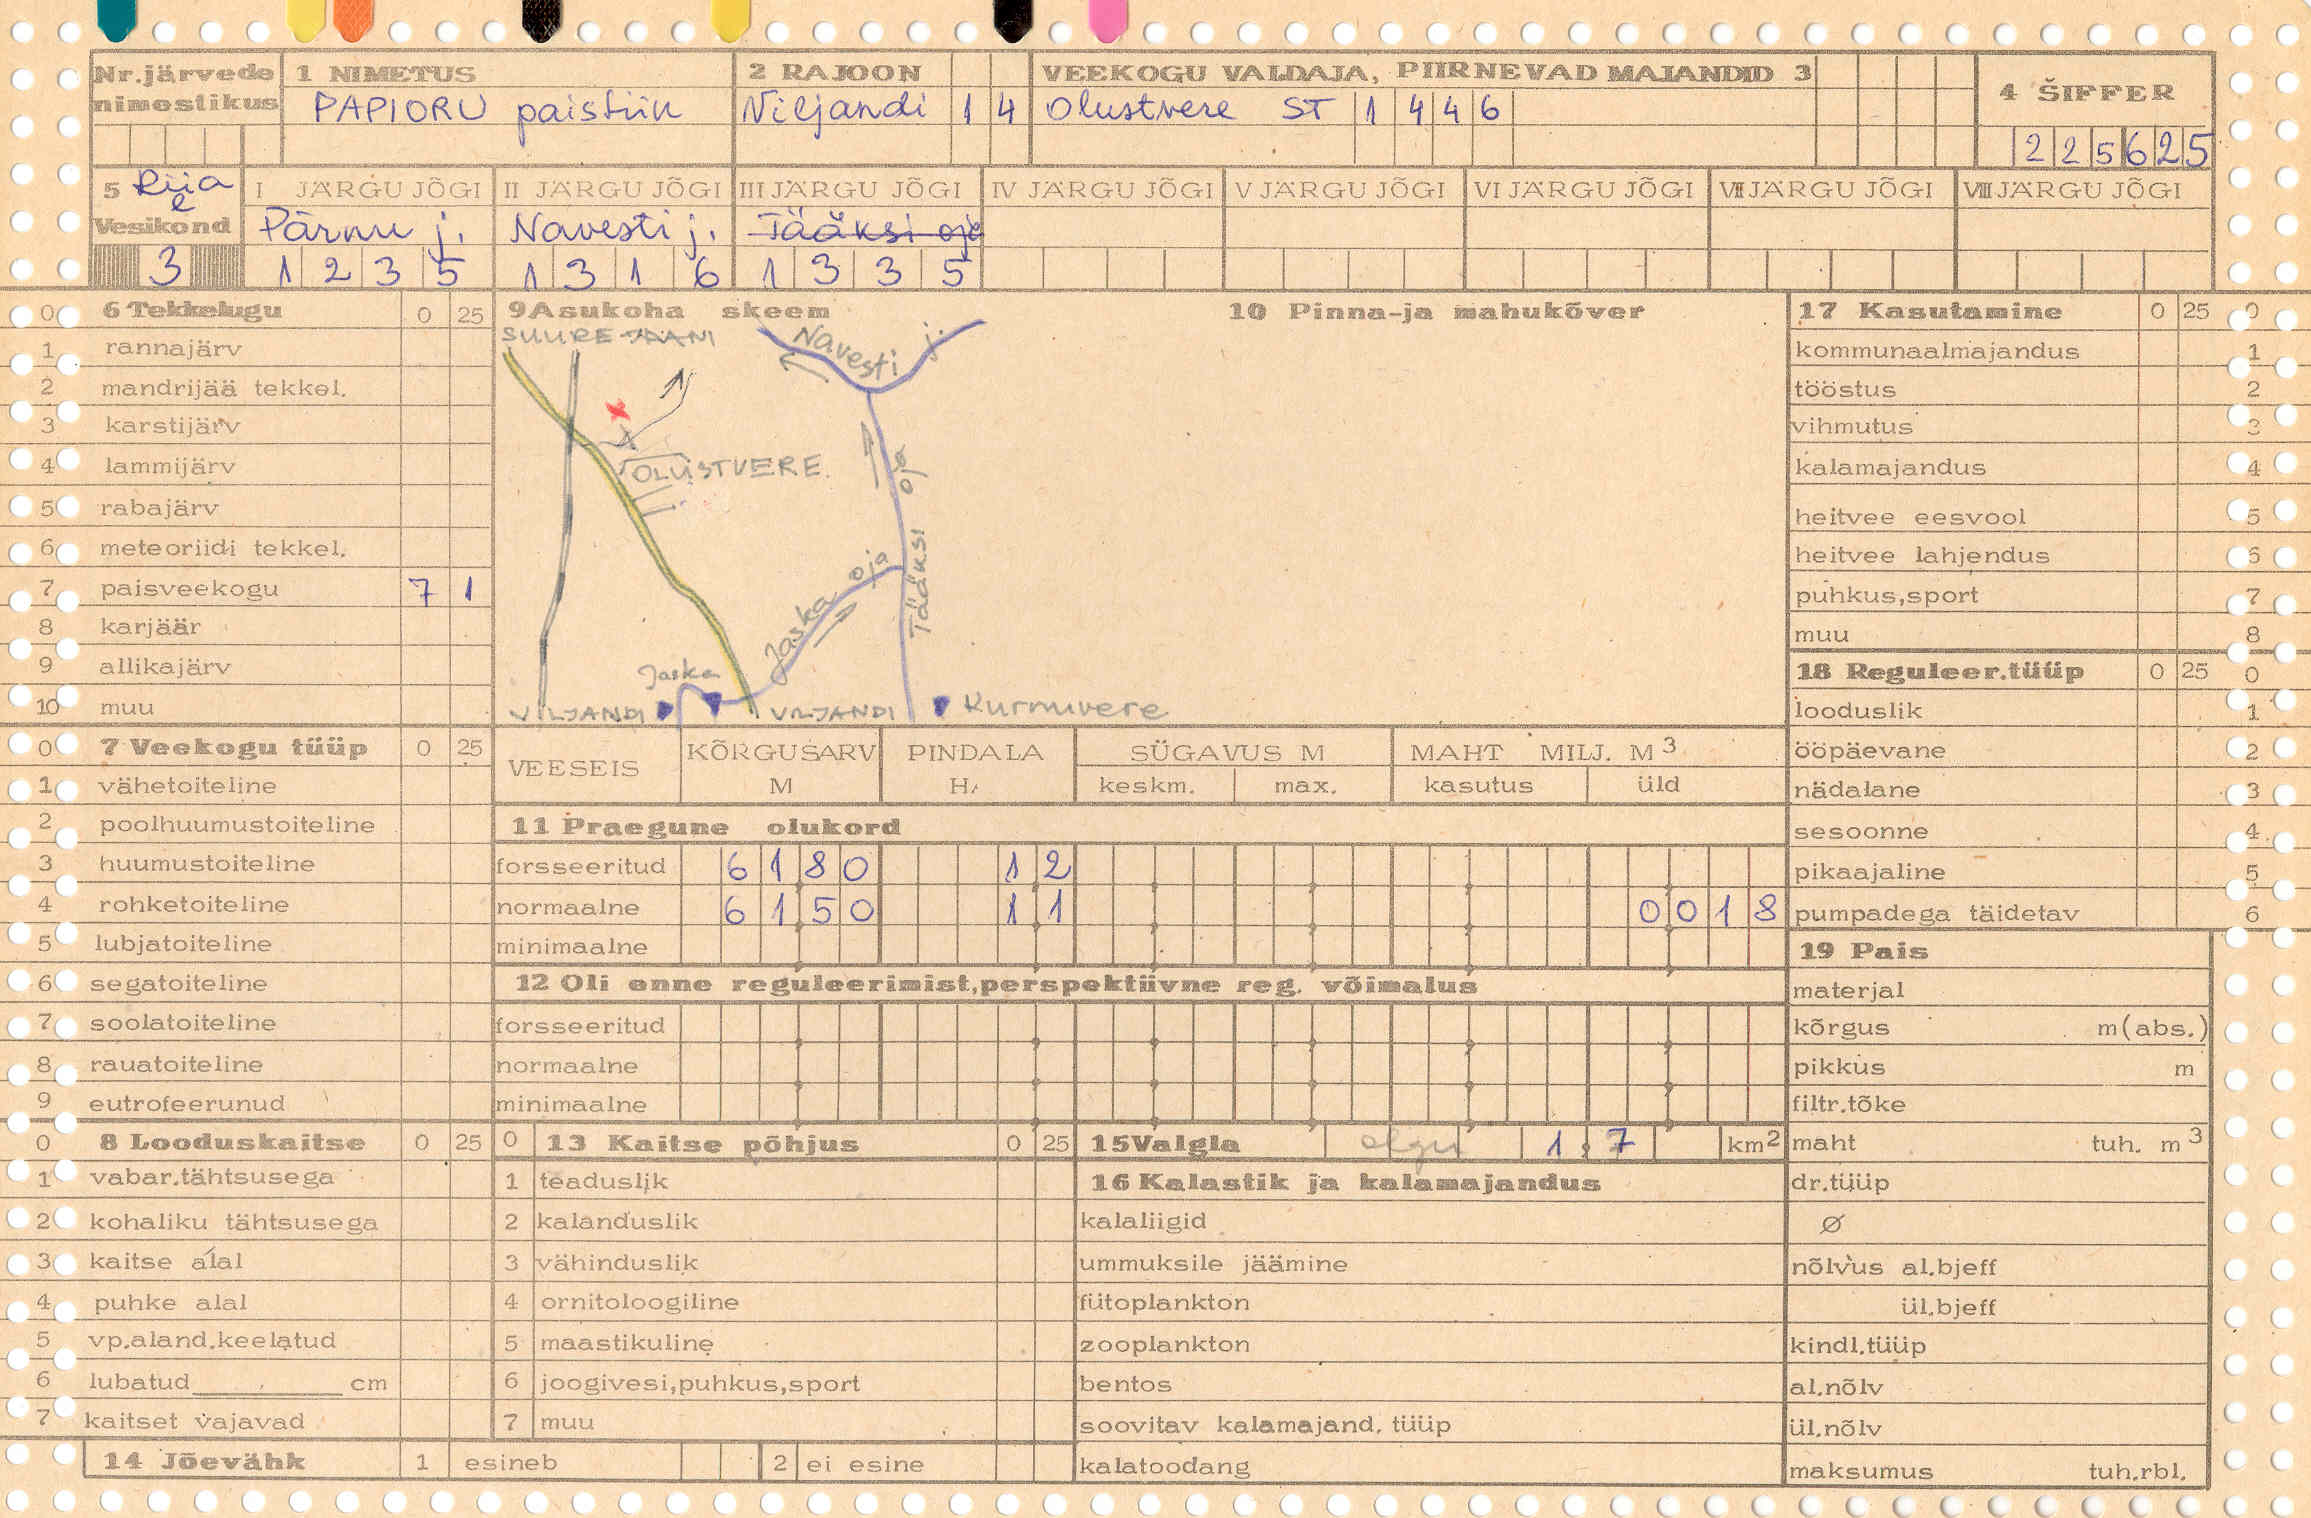 Nr.järvede nimestikus
1 NIMETUS
PAPIORU paistiik
2 RAJOON
Viljandi 14
VEEKOGU VALDAJA, PIIRNEVAD MAJANDID 3
Olustvere ST 1446
4 ŠIFFER
225625
5 Riia l
Vesikond
3
I JÄRGU JÕGI
Pärnu j.
1235
II JÄRGU JÕGI
Navesti j.
1316
III JÄRGU JÕGI
Tääksi oja
1335
IV JÄRGU JÕGI
V JÄRGU JÕGI
VI JÄRGU JÕGI
VII JÄRGU JÕGI
VIII JÄRGU JÕGI
0 6 Tekkelugu 0 25
1 rannajärv
2 mandrijää tekkel.
3 karstijärv
4 lammijärv
5 rabajärv
6 meteoriidi tekkel.
7 paisveekogu 7 1
8 karjäär
9 allikajärv
10 muu
0 7 Veekogu tüüp 0 25
1 vähetoiteline
2 poolhuumustoiteline
3 huumustoiteline
4 rohketoiteline
5 lubjatoiteline
6 segatoiteline
7 soolatoiteline
8 rauatoiteline
9 eutrofeerunud
0 8 Looduskaitse 0 25
1 vabar.tähtsusega
2 kohaliku tähtsusega
3 kaitse alal
4 puhke alal
5 vp.aland.keelatud
6 lubatud cm
7 kaitset vajavad
14 Jõevähk 1 esineb 2 ei esine
9 Asukoha skeem
SUURE-JAANI
Navesti j.
OLUSTVERE
Tääksi oja
Jaska oja
Jaska
VILJANDI
VILJANDI
Kurmivere
10 Pinna-ja mahukõver
VEESEIS
KÕRGUSARV M
PINDALA HA
SÜGAVUS M
keskm. max.
MAHT MILJ. M3
kasutus üld
11 Praegune olukord
forsseeritud 6180 12
normaalne 6150 11 0018
minimaalne
12 Oli enne reguleerimist,perspektiivne reg. võimalus
forsseeritud
normaalne
minimaalne
0 13 Kaitse põhjus 0 25
1 teaduslik
2 kalanduslik
3 vähinduslik
4 ornitoloogiline
5 maastikuline
6 joogivesi,puhkus,sport
7 muu
15 Valgla olgu 1,7 km2
16 Kalastik ja kalamajandus
kalaliigid
ummuksile jäämine
fütoplankton
zooplankton
bentos
soovitav kalamajand. tüüp
kalatoodang
17 Kasutamine 0 25 0
kommunaalmajandus 1
tööstus 2
vihmutus 3
kalamajandus 4
heitvee eesvool 5
heitvee lahjendus 6
puhkus,sport 7
muu 8
18 Reguleer.tüüp 0 25 0
looduslik 1
ööpäevane 2
nädalane 3
sesoonne 4
pikaajaline 5
pumpadega täidetav 6
19 Pais
materjal
kõrgus m(abs.)
pikkus m
filtr.tõke
maht tuh. m3
dr.tüüp
Ø
nõlvus al.bjeff
ül.bjeff
kindl.tüüp
al.nõlv
ül.nõlv
maksumus tuh.rbl.